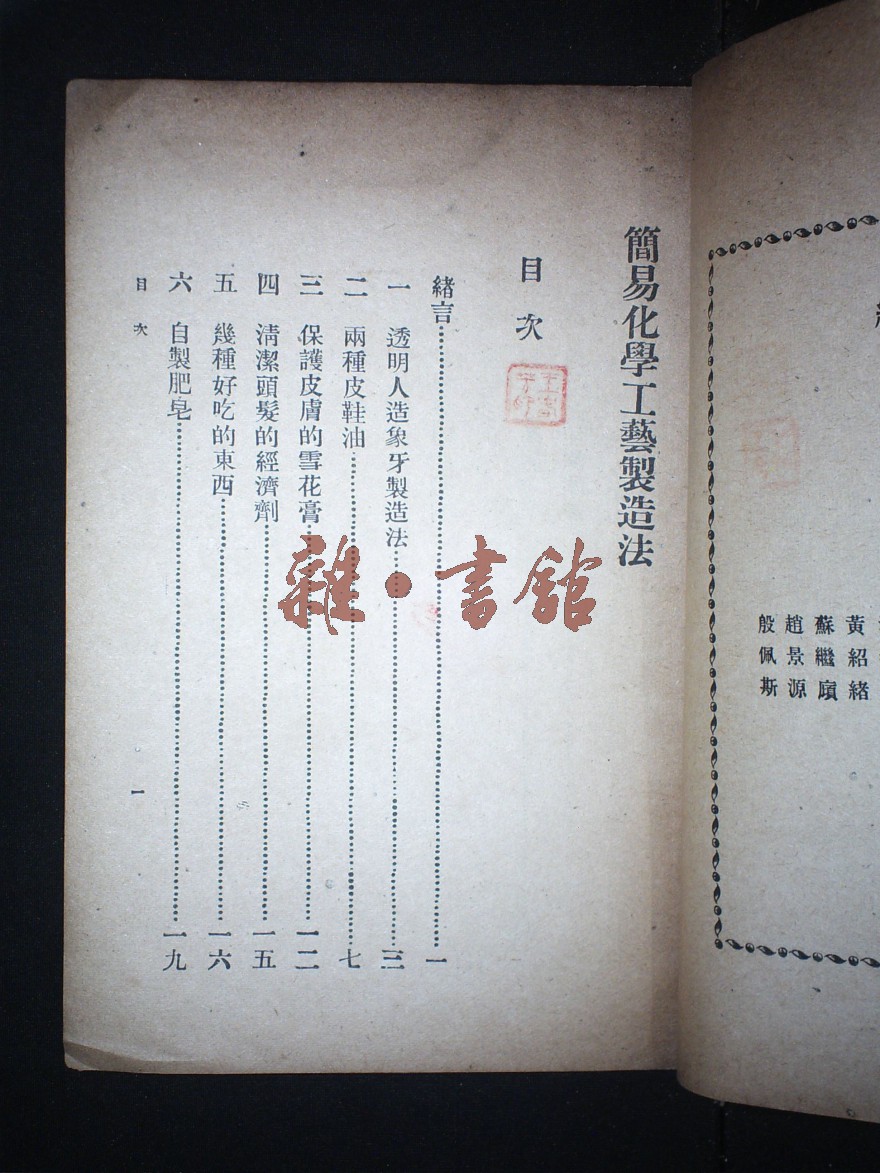 黃紹緒
蘇繼廎
趙景源
殷佩斯
簡易化學工藝製造法
目次
緒言……一
一 透明人造象牙製造法……三
二 兩種皮鞋油……七
三 保護皮膚的雪花膏……一二
四 清潔頭髮的經濟劑……一五
五 幾種好吃的東西……一六
六 自製肥皂……一九
目次
一
雜·書館